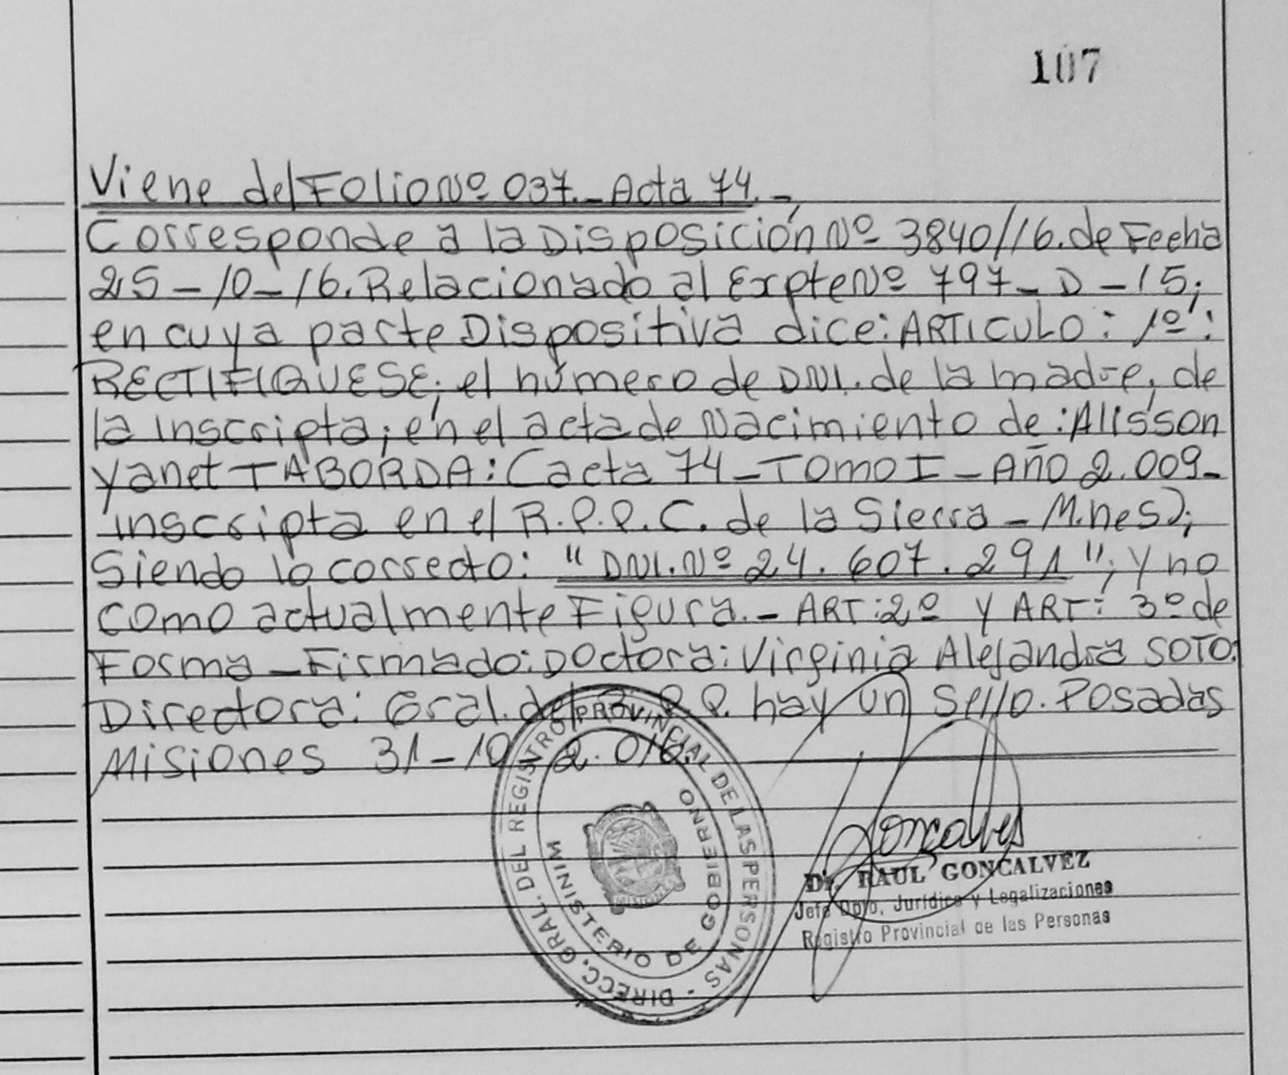 107
Viene del Folio Nº 037.- Acta 74.-
Corresponde a la Disposición Nº 3840/16. de Fecha
25-10-16. Relacionado al Expte Nº 797-D-15;
en cuya parte Dispositiva dice: ARTICULO: 1º:
RECTIFIQUESE; el número de DNI. de la madre, de
la inscripta; en el acta de Nacimiento de: Alisson
Yanet TABORDA: (acta 74-TOMO I-Año 2.009-
inscripta en el R.P.P.C. de la Sierra-M.nes);
Siendo lo correcto: "DNI. Nº 24.607.291"; y no
como actualmente Figura.- ART: 2º y ART: 3º de
Forma-Firmado: Doctora: Virginia Alejandra SOTO:
Directora: Gral. del R.P.P. hay un Sello. Posadas
Misiones 31-10 2.016.
DIRECC. GRAL. DEL REGISTRO PROVINCIAL DE LAS PERSONAS -
MINISTERIO DE GOBIERNO
Goncalves
Dr. RAUL GONCALVEZ
Jefe Dpto. Jurídico y Legalizaciones
Registro Provincial de las Personas